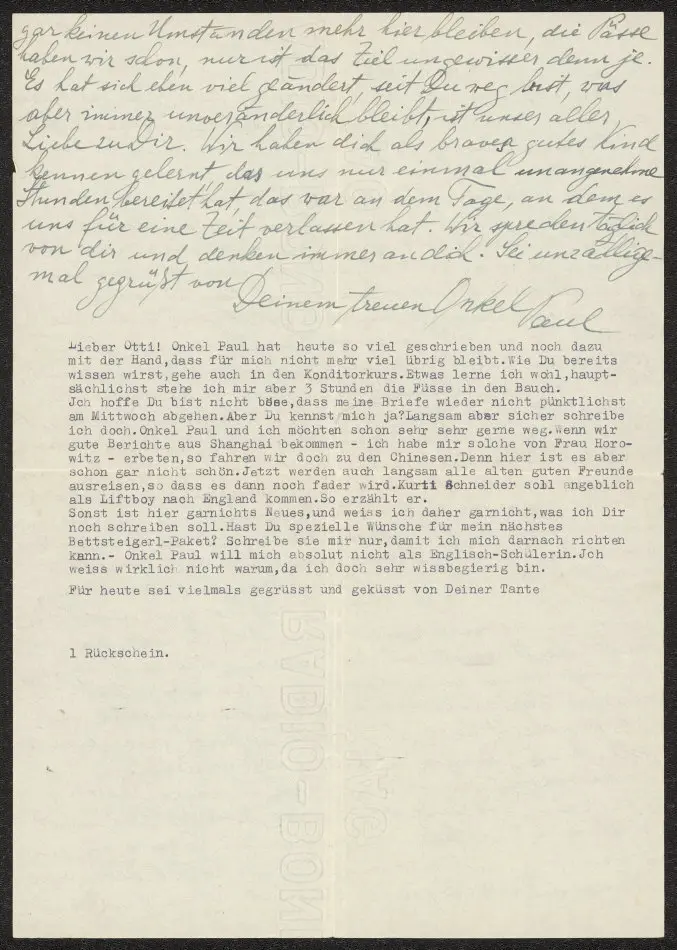 gar keinen Umständen mehr hier bleiben, die Pässe
haben wir schon, nur ist das Ziel ungewisser denn je.
Es hat sich eben viel geändert, seit Du weg bist, was
aber immer unveränderlich bleibt, ist unser aller
Liebe zu Dir. Wir haben dich als braves gutes Kind
kennen gelernt das uns nur einmal unangenehme
Stunden bereitet hat, das war an dem Tage, an dem es
uns für eine Zeit verlassen hat. Wir sprechen täglich
von dir und denken immer an dich. Sei unzällige-
mal gegrüßt von
Deinem treuen Onkel Paul
Lieber Otti! Onkel Paul hat heute so viel geschrieben und noch dazu
mit der Hand,dass für mich nicht mehr viel übrig bleibt.Wie Du bereits
wissen wirst,gehe auch in den Konditorkurs.Etwas lerne ich wohl,haupt-
sächlichst stehe ich mir aber 3 Stunden die Füsse in den Bauch.
Jch hoffe Du bist nicht böse,dass meine Briefe wieder nicht pünktlichst
am Mittwoch abgehen.Aber Du kennst mich ja?Langsam aber sicher schreibe
ich doch.Onkel Paul und ich möchten schon sehr sehr gerne weg.Wenn wir
gute Berichte aus Shanghai bekommen - ich habe mir solche von Frau Horo-
witz - erbeten,so fahren wir doch zu den Chinesen.Denn hier ist es aber
schon gar nicht schön.Jetzt werden auch langsam alle alten guten Freunde
ausreisen,so dass es dann noch fader wird.Kurti Schneider soll angeblich
als Liftboy nach England kommen.So erzählt er.
Sonst ist hier garnichts Neues,und weiss ich daher garnicht,was ich Dir
noch schreiben soll.Hast Du spezielle Wünsche für mein nächstes
Bettsteigerl-Paket? Schreibe sie mir nur,damit ich mich darnach richten
kann.- Onkel Paul will mich absolut nicht als Englisch-Schülerin.Jch
weiss wirklich nicht warum,da ich doch sehr wissbegierig bin.
Für heute sei vielmals gegrüsst und geküsst von Deiner Tante
1 Rückschein.
RADIO-BON